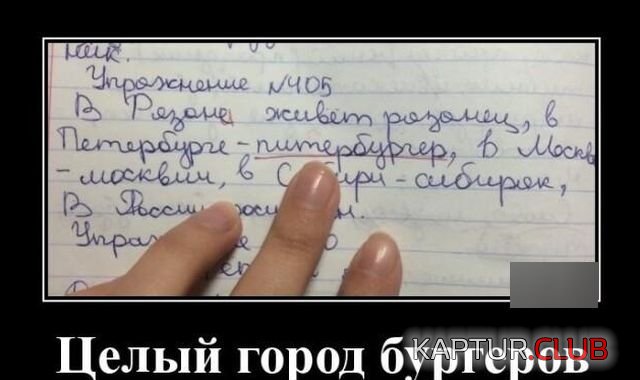 ник.
Упражнение №405
В Рязане живет рязанец, в
Петербурге - питербургер, в Москв
- москвич, в Сибири - сибиряк,
В России
Упраж
Целый город бургеров
KAPTUR.CLUB